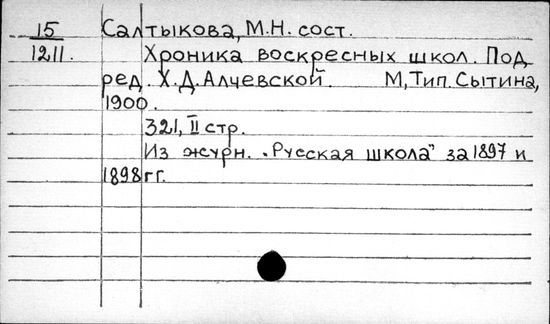 15 Салтыкова, М.Н. сост.
1211. Хроника воскресных школ. Под
ред. Х.Д.Алчевской. М, Тип. Сытина,
1900.
321, II стр.
Из журн. "Русская школа" за 1897 и
1898 гг.